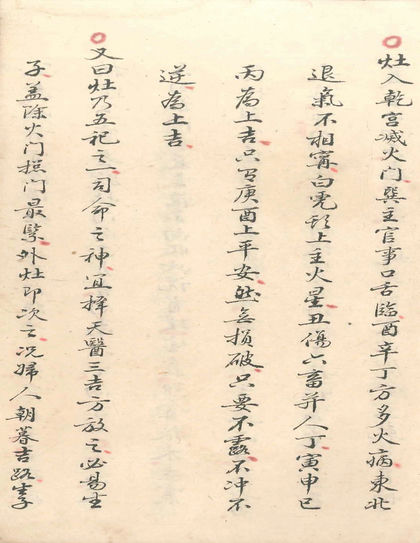 灶入乾宫灭火门巽主官事口舌臨酉辛丁方多火病東北
退氣不相寗白虎頭上主火星丑傷六畜并人丁寅申巳
丙為上吉只有庚酉上平安然無損破只要不露不冲不
逆為上吉
又曰灶乃五祀之一司命之神宜择天醫三吉方放之必易生
子盖除火门摋门最緊外灶即次之况婦人朝暮吉路李